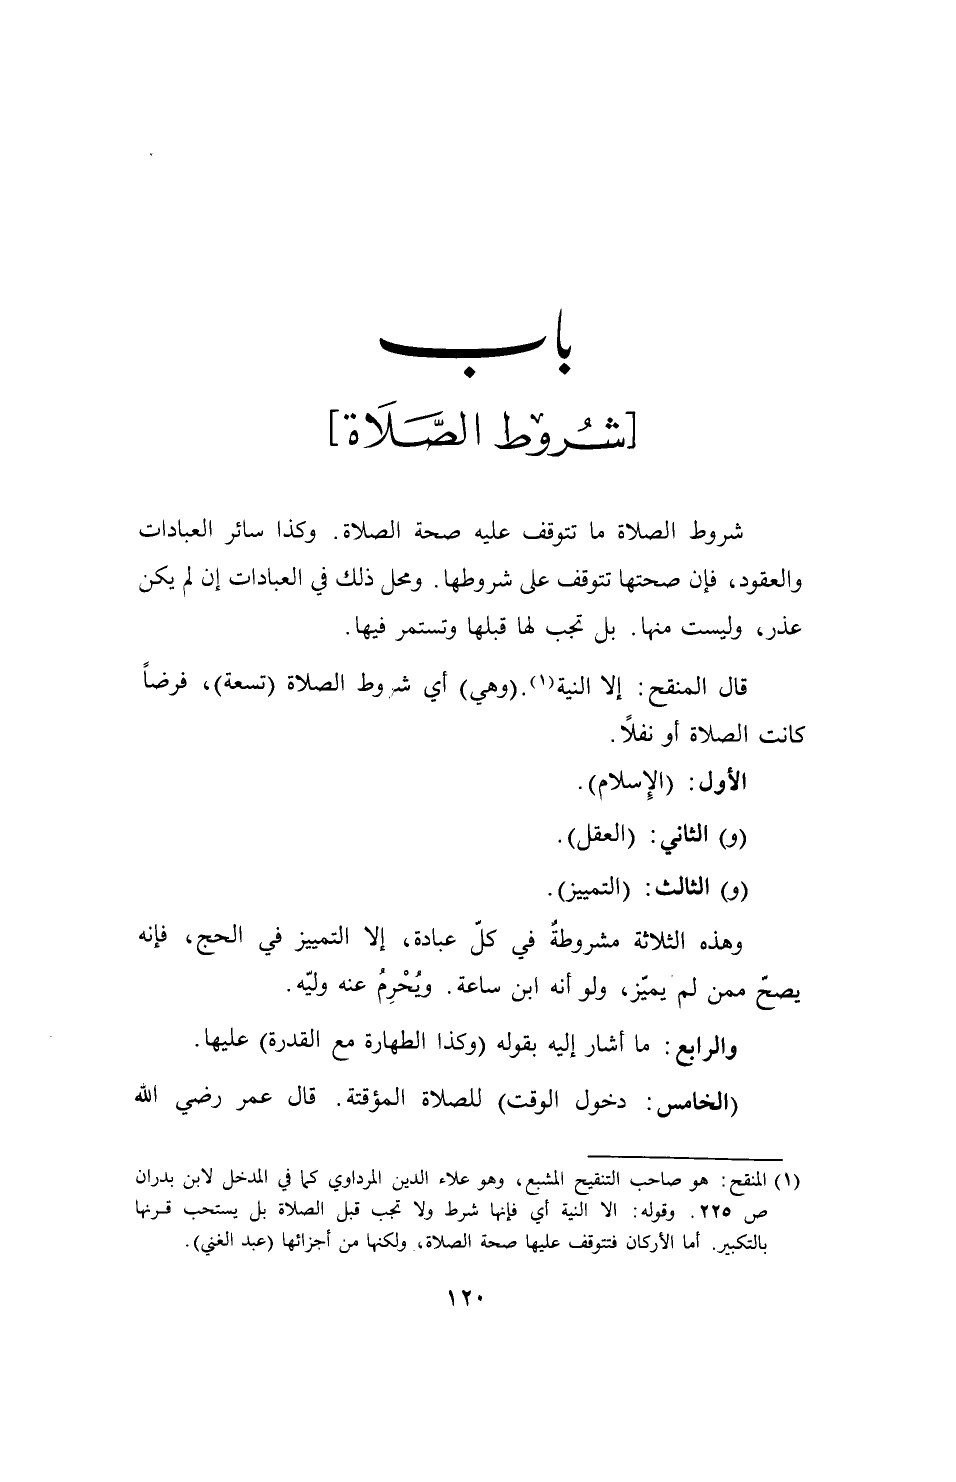 باب
[شُروْط الصَّلَاة]
شروط الصلاة ما تتوقف عليه صحة الصلاة. وكذا سائر العبادات
والعقود، فإن صحتها تتوقف على شروطها. ومحل ذلك في العبادات إن لم يكن
عذر، وليست منها. بل تجب لها قبلها وتستمر فيها.
قال المنقح: إلا النية(١).(وهي) أي شروط الصلاة (تسعة)، فرضاً
كانت الصلاة أو نفلًا.
الأول: (الإسلام).
(و) الثاني: (العقل).
(و) الثالث: (التمييز).
وهذه الثلاثة مشروطةٌ في كلّ عبادة، إلا التمييز في الحج، فإنه
يصحّ ممن لم يميّز، ولو أنه ابن ساعة. ويُحْرِمُ عنه وليّه.
والرابع: ما أشار إليه بقوله (وكذا الطهارة مع القدرة) عليها.
(الخامس: دخول الوقت) للصلاة المؤقتة. قال عمر رضي الله
(١) المنقح: هو صاحب التنقيح المشبع، وهو علاء الدين المرداوي كما في المدخل لابن بدران
ص ٢٢٥. وقوله: الا النية أي فإنها شرط ولا تجب قبل الصلاة بل يستحب قرنها
بالتكبير. أما الأركان فتتوقف عليها صحة الصلاة، ولكنها من أجزائها (عبد الغني).
١٢٠